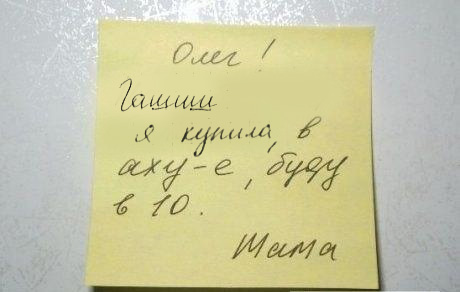 Олег!
Гашиш
я купила, в
аху-е, буду
в 10.
Мама